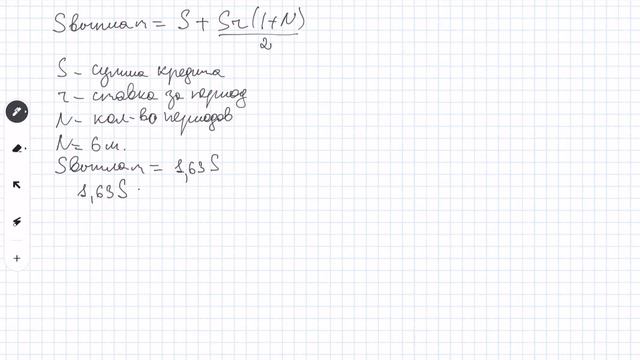 Sвыплат = S + Sr(1+N)/2
S - сумма кредита
r - ставка за период
N - кол-во периодов
N = 6 м.
Sвыплат = 1,63 S
1,63 S